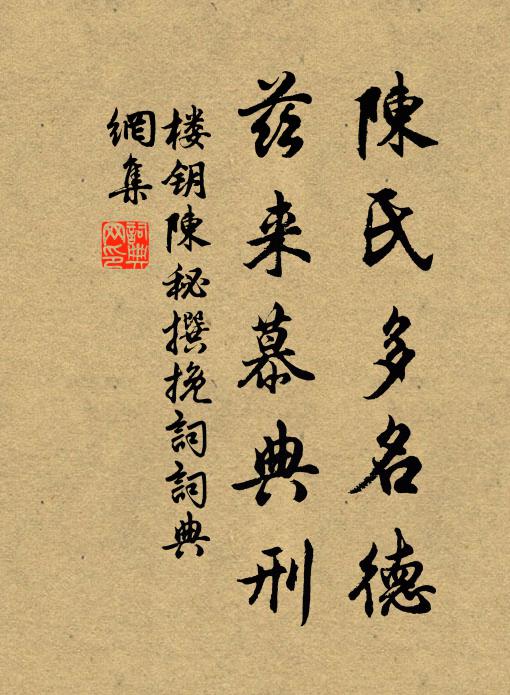 陳氏多名德
茲来慕典刑
楼钥陳秘撰挽詞詞典
網集
詞典
网印